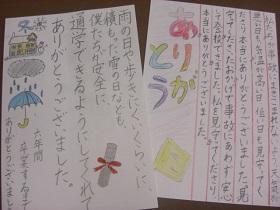 雨の日や歩きにくいくらいに
積もった雪の日なども
僕たちが安全に
通学できるようにしてくれて
ありがとうございました。
六年間
ありがとうございました
ありがとう
暑い日も気温が高い日、低い日も見守ってく
ださり本当にありがとうございました。見
守ってくださったおかげで事故にあわず安心
して登校できました。私を見守ってくださり
本当にありがとうございました。